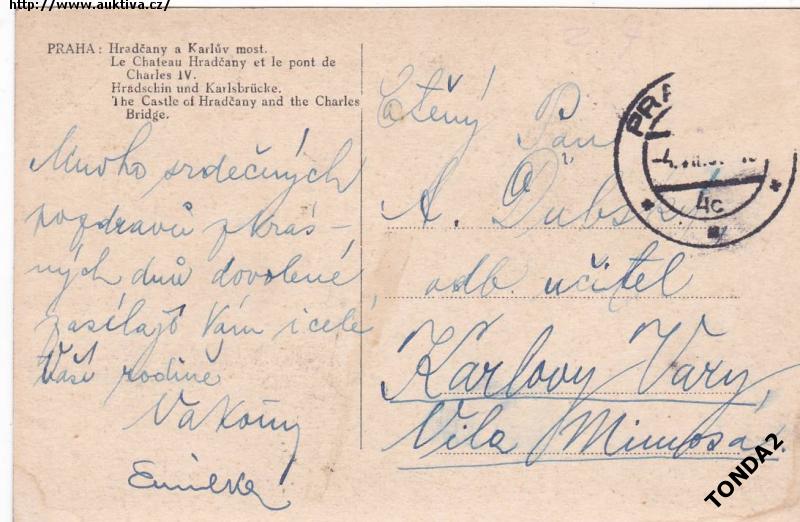 http://www.auktiva.cz/
PRAHA: Hradčany a Karlův most.
Le Chateau Hradčany et le pont de
Charles IV.
Hradschin und Karlsbrücke.
The Castle of Hradčany and the Charles
Bridge.
Mnoho srdečných
pozdravů z krás-
ných dnů dovolené
zasílají Vám i celé
Vaší rodině
Ctěný Pán
A. Dubský
odb. učitel
Karlovy Vary,
Vila Mimosa.
4c
TONDA2